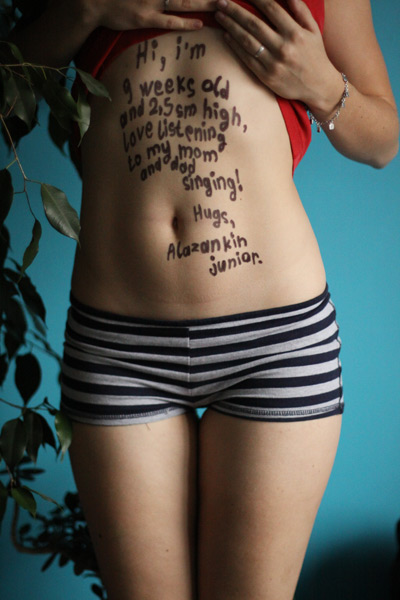 Hi, i'm
9 weeks old
and 2,5 sm high,
love listening
to my mom
and dad
singing!
Hugs,
Alazankin
junior.